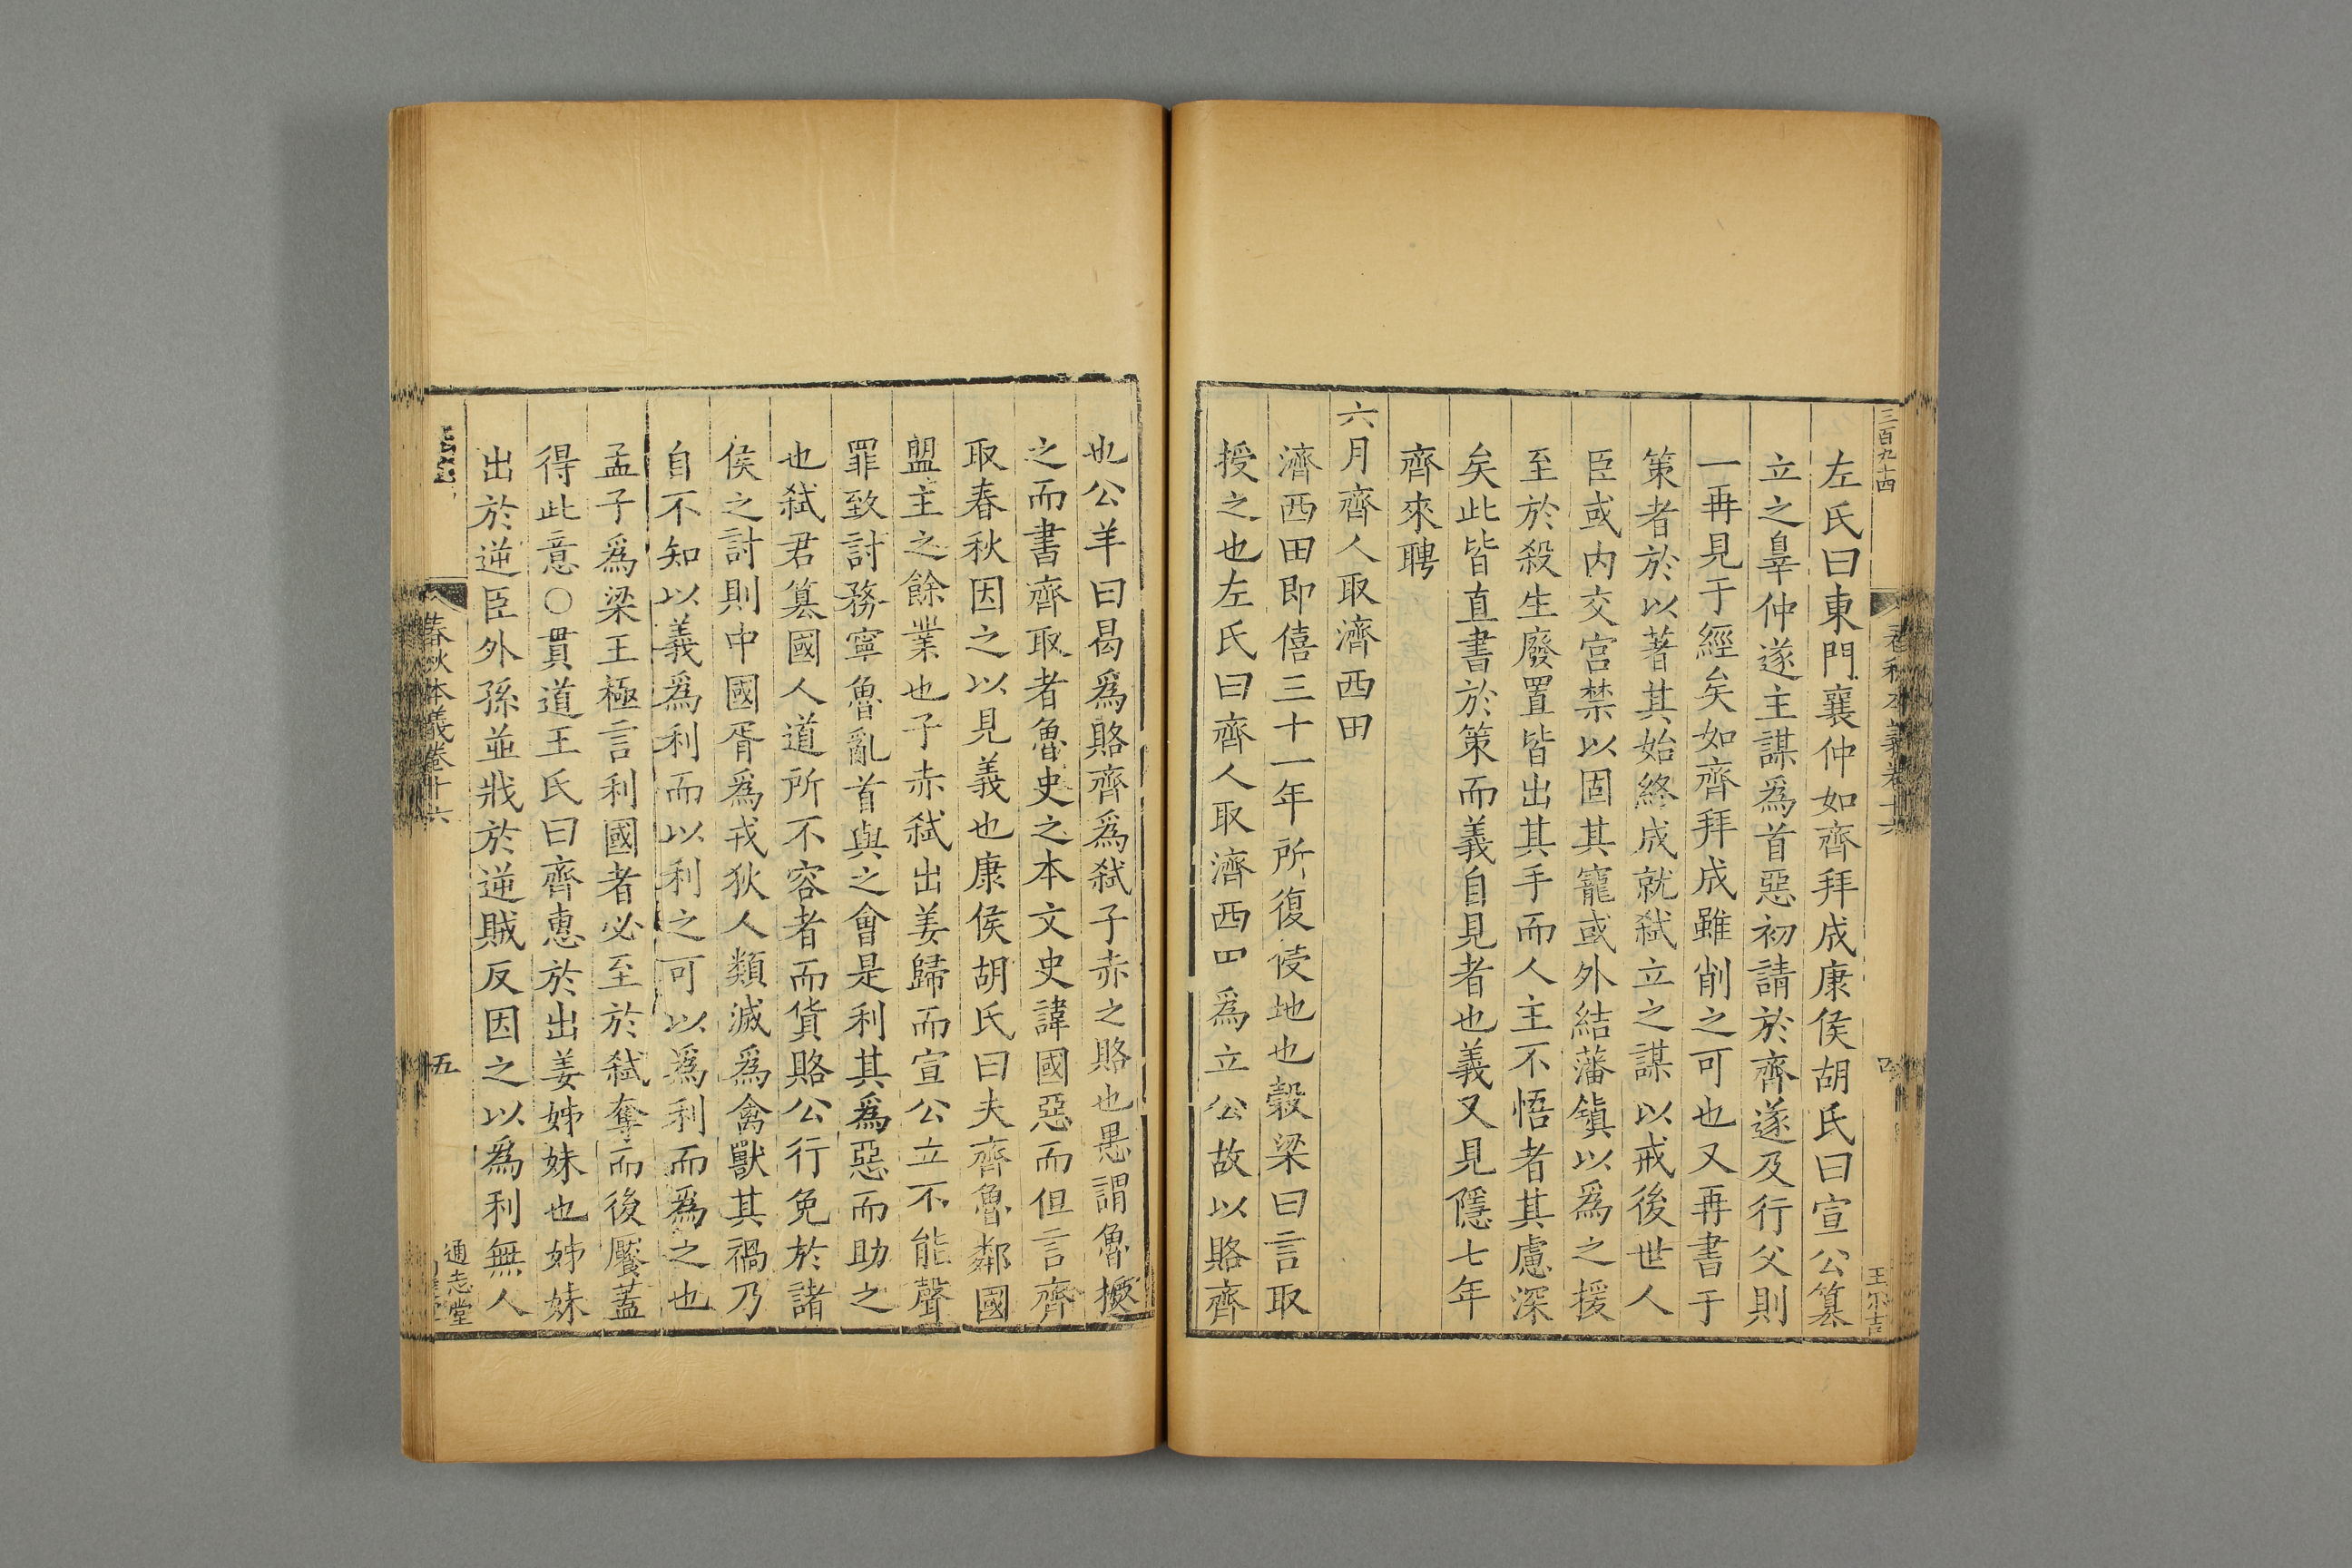 三百九十四
左氏曰東門襄仲如齊拜成康侯胡氏曰宣公篡
立之辠仲遂主謀爲首惡初請於齊遂及行父則
一再見于經矣如齊拜成雖削之可也又再書于
策者於以著其始終成就弑立之謀以戒後世人
臣或内交宫禁以固其寵或外結藩鎭以爲之援
至於殺生廢置皆出其手而人主不悟者其慮深
矣此皆直書於策而義自見者也義又見隱七年
齊來聘
六月齊人取濟西田
濟西田即僖三十一年所復侵地也穀梁曰言取
授之也左氏曰齊人取濟西四爲立公故以賂齊
春秋本義卷十六
四
王尔吉
也公羊曰曷爲賂齊爲弑子赤之賂也愚謂魯𢷎
之而書齊取者魯史之本文史諱國惡而但言齊
取春秋因之以見義也康侯胡氏曰夫齊魯鄰國
盟主之餘業也子赤弑出姜歸而宣公立不能聲
罪致討務寧魯亂首與之會是利其爲惡而助之
也弑君篡國人道所不容者而貨賂公行免於諸
侯之討則中國胥爲戎狄人類滅爲禽獸其禍乃
自不知以義爲利而以利之可以爲利而爲之也
孟子爲梁王極言利國者必至於弑奪而後饜蓋
得此意○貫道王氏曰齊惠於出姜姊妹也姊妹
出於逆臣外孫並戕於逆賊反因之以爲利無人
春秋本義卷十六
五
通志堂